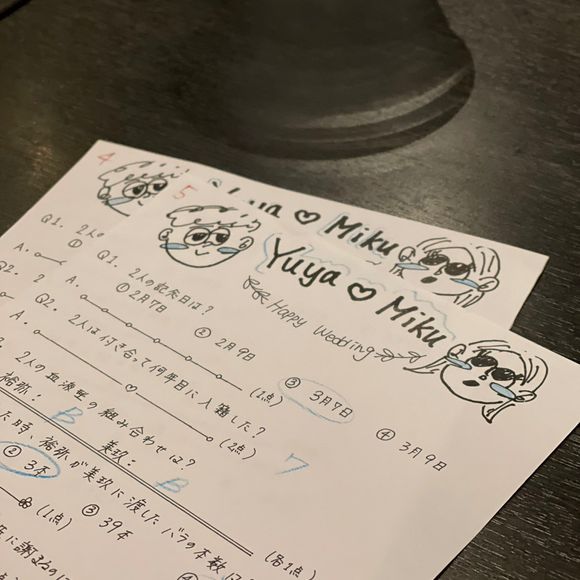 4
5
Miku
Yuya ♡ Miku
Happy Wedding
Q1. 2人の
①
A.
Q1. 2人の記念日は?
① 2月7日 ② 2月9日 ③ 3月7日 ④ 3月9日
A.
(1点)
Q2. 2
Q2. 2人は付き合って何年目に入籍した?
A.
7
(2点)
2人の血液型の組み合わせは?
裕弥: B 美玖: B
(各1点)
裕弥が美玖に渡したバラの本数は
② 3本 ③ 39本
(1点)